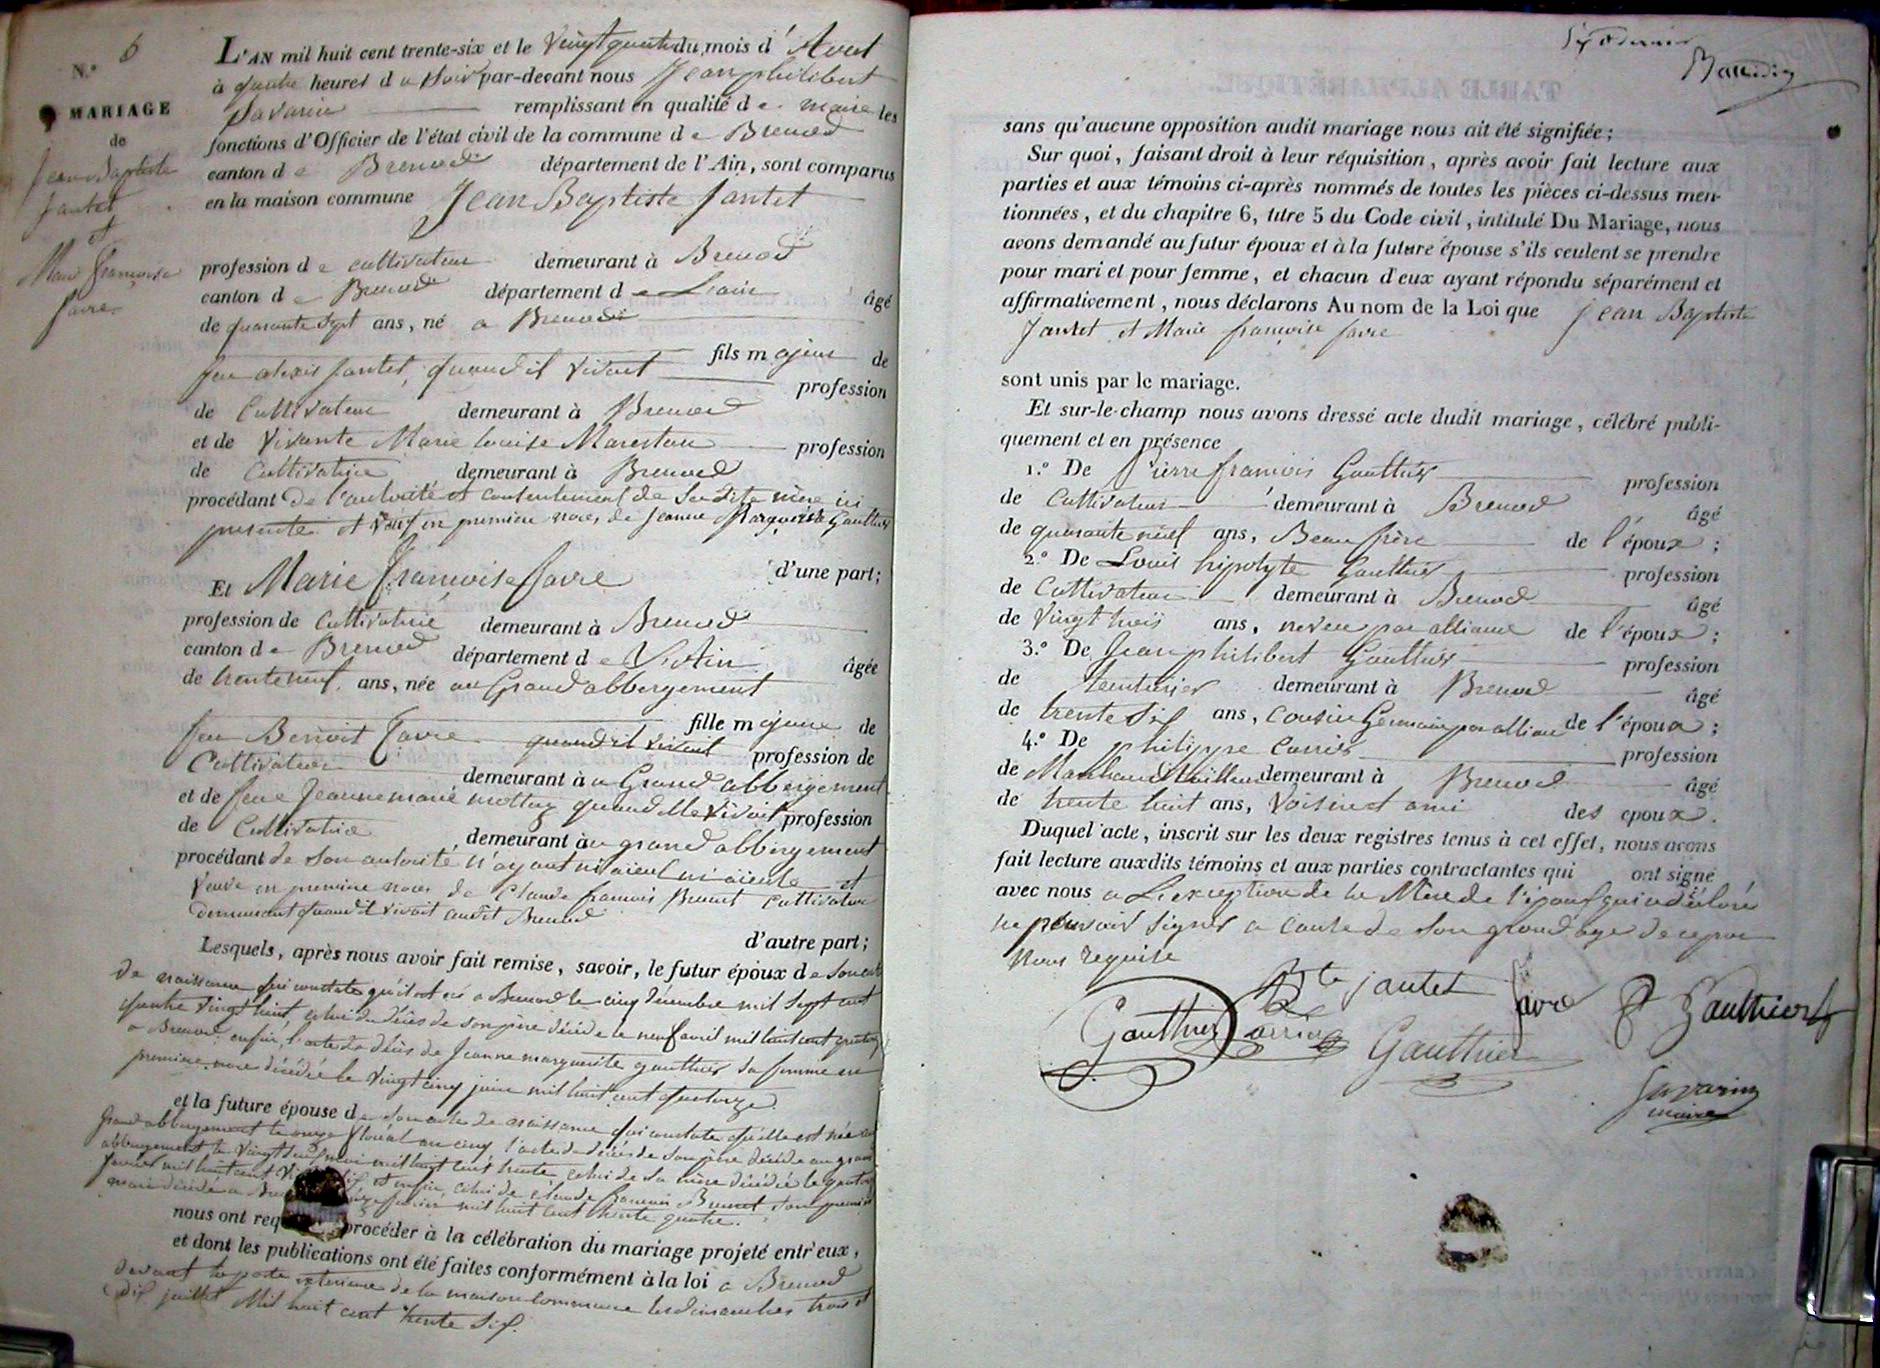 N.º 6
MARIAGE
de
Jean Baptiste
Jantet
et
Marie françoise
favre
L'AN mil huit cent trente-six et le vingt quatre du mois d'Aout
à quatre heures du Soir par-devant nous Jean philibert
Savarin remplissant en qualité de maire les
fonctions d'Officier de l'état civil de la commune de Brenod
canton de Brenod département de l'Ain, sont comparus
en la maison commune Jean Baptiste Jantet
profession de cultivateur demeurant à Brenod
canton de Brenod département de L'ain âgé
de quarante sept ans, né a Brenod
fils majeur de
feu alexis Jantet, quand il vivait profession
de Cultivateur demeurant à Brenod
et de vivante Marie Louise profession
de Cultivatrice demeurant à Brenod
procédant de l'autorité et consentement de Sa dite mère ici
presente et veuf en premiere noces de Jeanne Marguerite Gauthier
d'une part;
Et Marie françoise favre
profession de Cultivatrice demeurant à Brenod
canton de Brenod département de L'Ain âgée
de trente neuf ans, née au Grand abbergement
fille majeure de
feu Benoit favre quand il vivait profession de
Cultivateur demeurant à au Grand abbergement
et de feue Jeanne marie quand elle vivait profession
de Cultivatrice demeurant au grand abbergement
procédant de son autorité n'ayant ni aieul ni aieule et
veuve en premiere noces de Claude francois Brunet cultivateur
demeurant quand il vivait audit Brenod
d'autre part;
Lesquels, après nous avoir fait remise, savoir, le futur époux de Son acte
de naissance qui constate qu'il est né a Brenod le cinq décembre mil sept cent
quatre vingt huit, celui du décès de son père décédé le neuf avril mil huit cent
a Brenod enfin, l'acte de décès de Jeanne marguerite gauthier sa femme en
premiere noces décédée le vingt cinq juin mil huit cent quatorze
et la future épouse de son acte de naissance qui constate qu'elle est née au
Grand abbergement le onze floréal an cinq l'acte de décès de son père décédé au grand
abbergement le vingt mai mil huit cent trente, celui de sa mère décédée le quatorze
mil huit cent et enfin, celui de claude francois Brunet son premier
mari décédé a mil huit cent trente quatre.
nous ont req procéder à la célébration du mariage projeté entr'eux,
et dont les publications ont été faites conformément à la loi a Brenod
devant la porte exterieure de la maison Commune les dimanches trois et
dix juillet Mil huit cent trente six.
sans qu'aucune opposition audit mariage nous ait été signifiée;
Sur quoi, faisant droit à leur réquisition, après avoir fait lecture aux
parties et aux témoins ci-après nommés de toutes les pièces ci-dessus men-
tionnées, et du chapitre 6, titre 5 du Code civil, intitulé Du Mariage, nous
avons demandé au futur époux et à la future épouse s'ils veulent se prendre
pour mari et pour femme, et chacun d'eux ayant répondu séparément et
affirmativement, nous déclarons Au nom de la Loi que Jean Baptiste
Jantet et Marie françoise favre
sont unis par le mariage.
Et sur-le-champ nous avons dressé acte dudit mariage, célébré publi-
quement et en présence
1.º De Pierre francois Gauthier profession
de Cultivateur demeurant à Brenod âgé
de quarante neuf ans, Beau frère de l'époux;
2.º De Louis hipolyte Gauthier profession
de Cultivateur demeurant à Brenod âgé
de vingt trois ans, neveu par alliance de l'époux;
3.º De Jean philibert Gauthier profession
de teinturier demeurant à Brenod âgé
de trente six ans, cousin Germain par alliance de l'époux;
4.º De philippe Carrier profession
de Marchand Tailleur demeurant à Brenod âgé
de trente huit ans, voisin et ami des epoux.
Duquel acte, inscrit sur les deux registres tenus à cet effet, nous avons
fait lecture auxdits témoins et aux parties contractantes qui ont signé
avec nous a L'exception de la Mère de l'époux qui a déclaré
ne pouvoir signer a cause de son grand age de ce par
Nous requise
Bte jantet favre
Gauthier Carrier Gauthier Gauthier
Savarin
maire